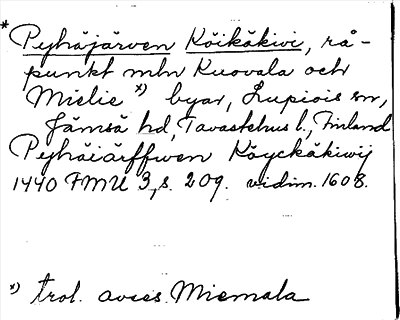 * Pyhäjärven Köikäkivi, rå-
punkt mln Kuovala och
Mielie *) byar, Lupiois sn,
Jämsä hd, Tavastehus l., Finland
Peyhäiärffwen Köyckäkiwij
1440 FMU 3, s. 209. vidim. 1608.
*) trol. avses Miemala